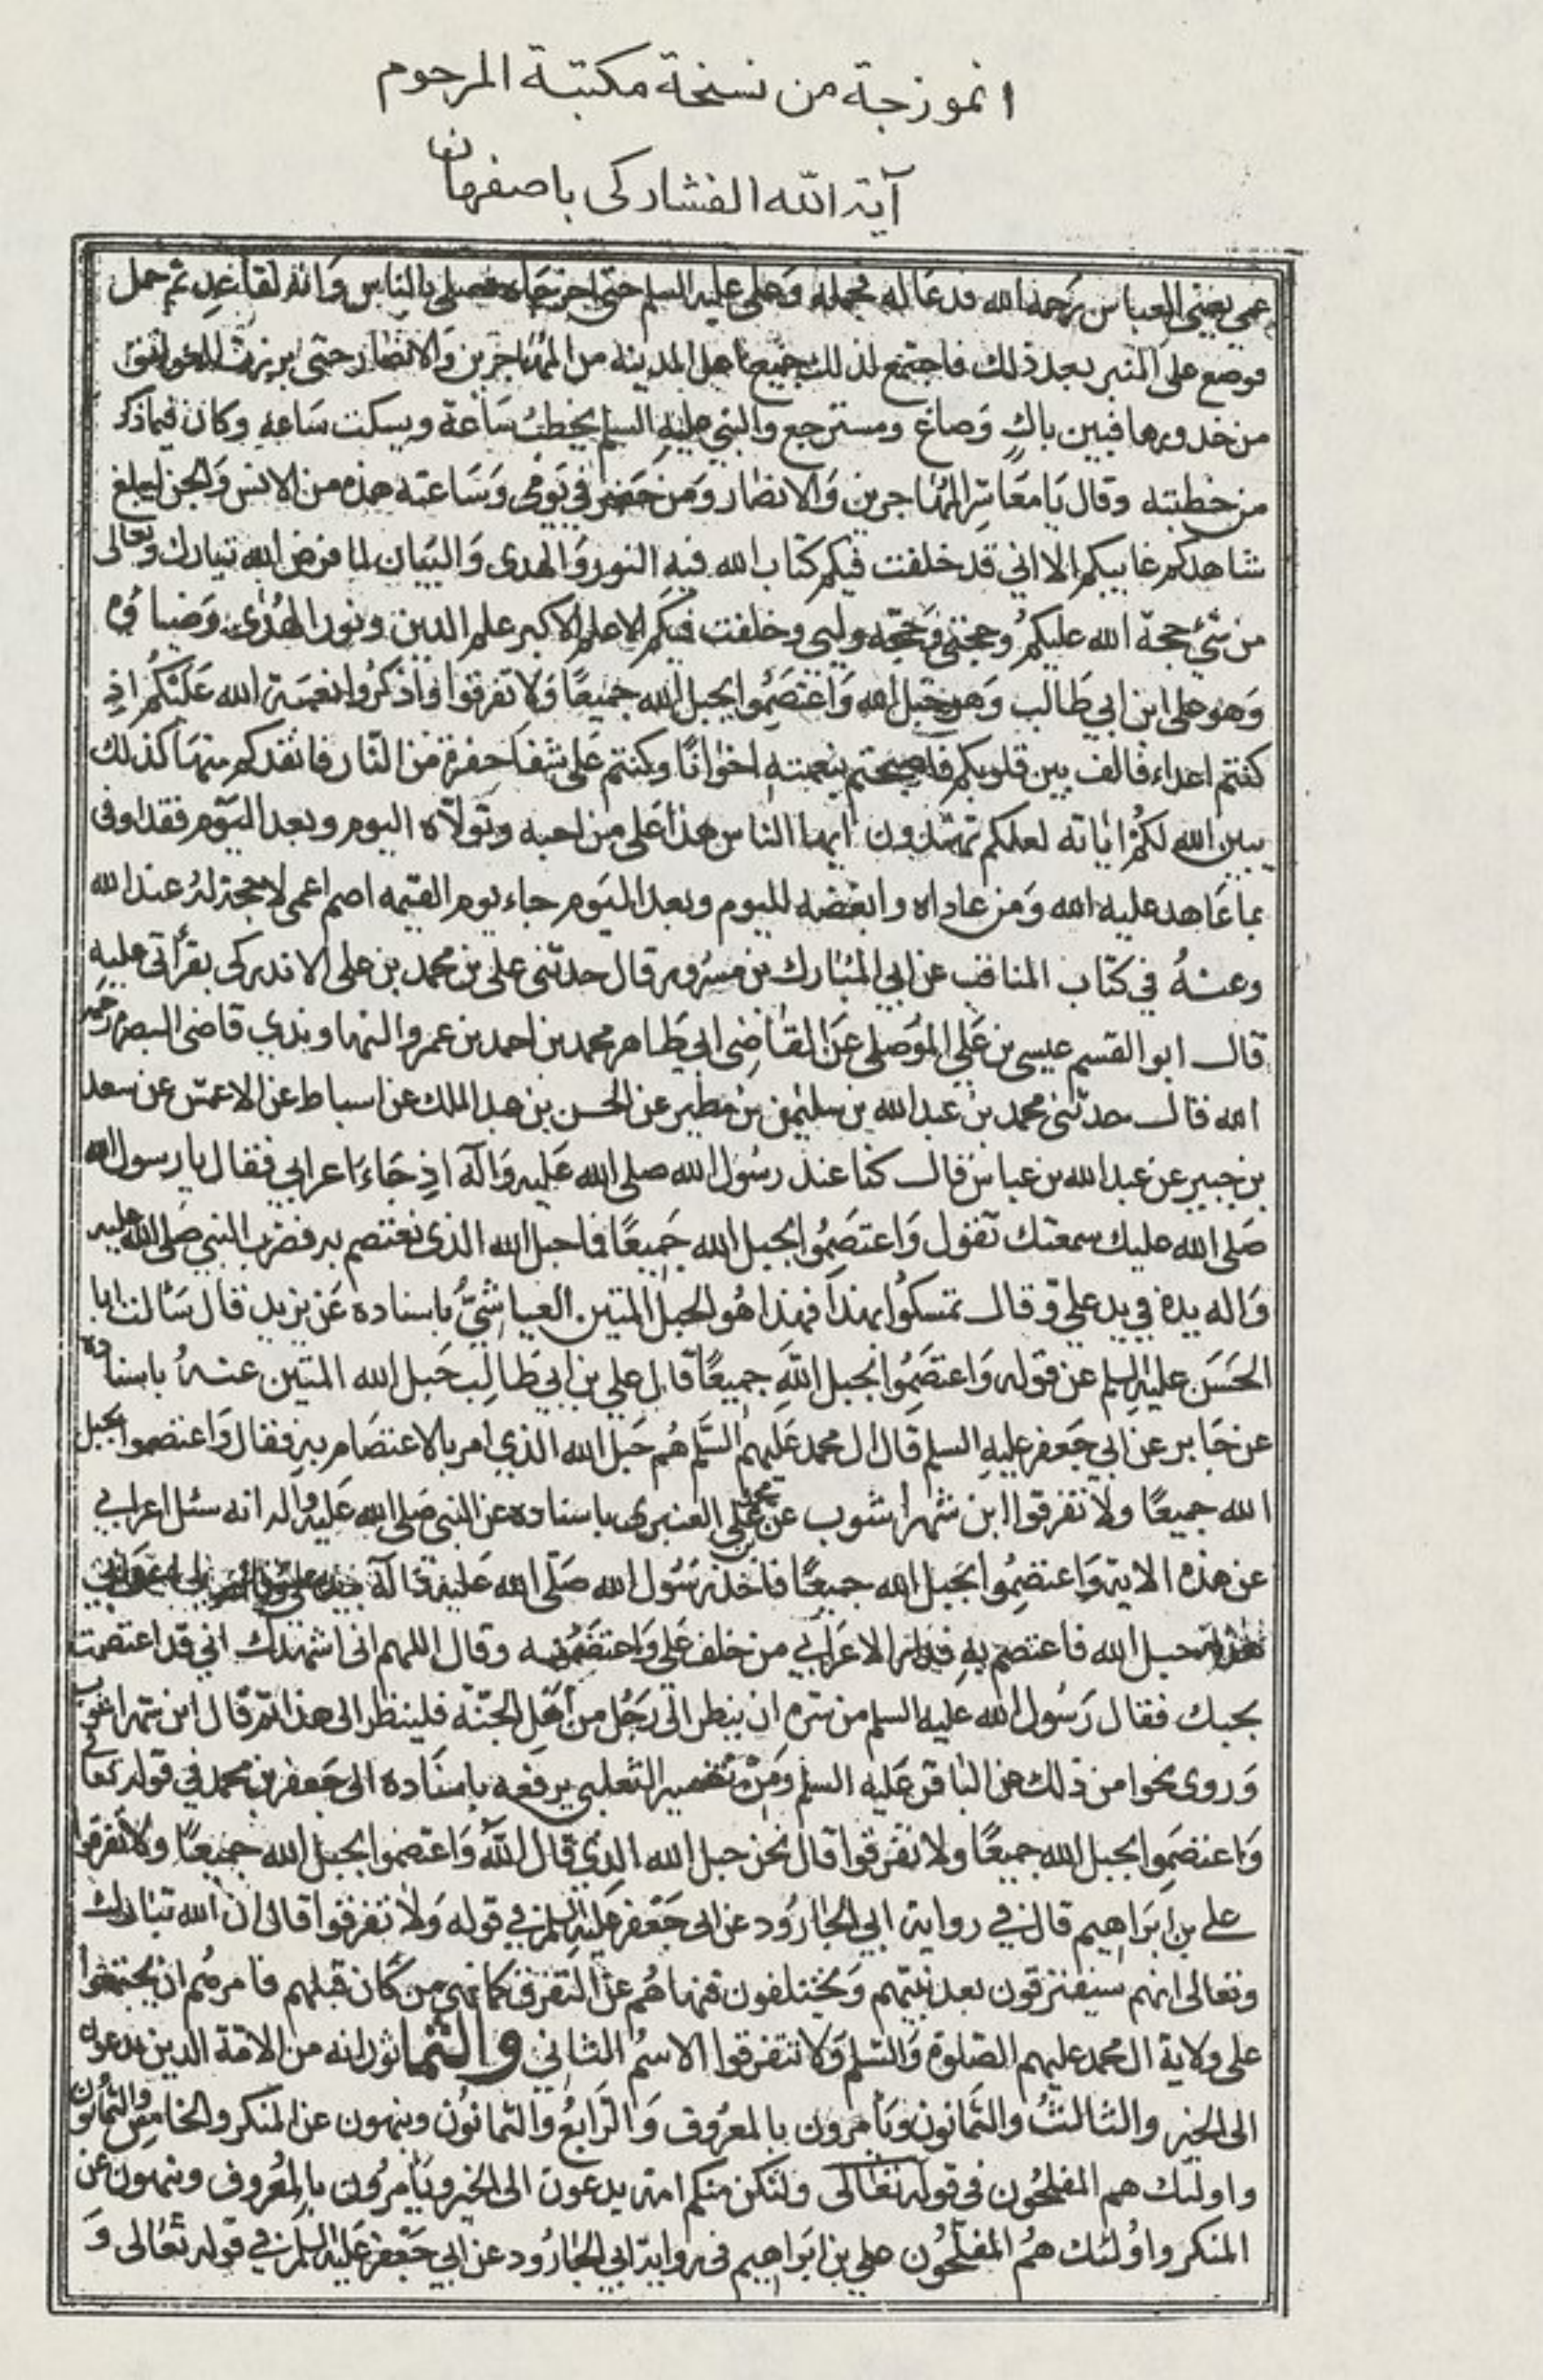 انموزجة من نسخة مكتبة المرحوم
آية الله الفشاركى باصفهان
عمي يعني العباس يرحمه الله فدعا له فحمله وعلى عليه السلم حتى فصلى بالناس وانه لقاعد ثم حمل
فوضع على المنبر بعد ذلك فاجتمع لذلك جميع اهل المدينة من المهاجرين والانصار حتى برزت العواتق
من خدورها فبين باكٍ وصاغ ومسترجع والنبي عليه السلم يخطب ساعة ويسكت ساعة وكان فيما ذكر
من خطبته وقال يا معاشر المهاجرين والانصار ومن حضر في يومى وساعته هذه من الانس والجن ليبلغ
شاهدكم غايبكم الا اني قد خلفت فيكم كتاب الله فيه النور والهدى والبيان لما فرض الله تبارك وتعالى
من شئ حجة الله عليكم وحجتى وحجة وليى وخلفت فيكم الاعلم الاكبر علم الدين ونور الهدى وضياؤه
وهو على ابن ابي طالب وهو حبل الله واعتصموا بحبل الله جميعًا ولا تفرقوا واذكروا نعمة الله عليكم اذ
كنتم اعداء فالف بين قلوبكم فاصبحتم بنعمته اخوانًا وكنتم على شفا حفرة من النار فانقذكم منها كذلك
يبين الله لكم اياته لعلكم تهتدون ايها الناس هذا على من احبه وتولاه اليوم وبعد اليوم فقد اوفى
بما عاهد عليه الله ومن عاداه وابغضه لليوم وبعد اليوم جاء يوم القيمه اصم اعمى لا حجة له عند الله
وعنه في كتاب المناقب عن ابي المبارك بن مسرور قال حدثنى على بن محمد بن على الاندركى بقرأتى عليه
قال ابو القسم عيسى بن على الموصلى عن القاضى ابي طاهر محمد بن احمد بن عمرو النهاوندي قاضى البصرة رحمه
الله قال حدثنى محمد بن عبد الله بن سليمن بن مطير عن الحسن بن عبد الملك عن اسباط عن الاعمش عن سعد
بن جبير عن عبد الله بن عباس قال كنا عند رسول الله صلى الله عليه وآله اذ جاء اعرابي فقال يا رسول الله
صلى الله عليك سمعتك تقول واعتصموا بحبل الله جميعًا فما حبل الله الذى نعتصم به فضرب النبي صلى الله عليه
واله يده في يد علي وقال تمسكوا بهذا فهذا هو الحبل المتين العياشيّ باسناده عن يزيد قال سألت ابا
الحسن عليه السلم عن قوله واعتصموا بحبل الله جميعًا قال علي بن ابي طالب حبل الله المتين عنه باسناده
عن جابر عن ابي جعفر عليه السلم قال ال محمد عليهم السلم هم حبل الله الذي امر بالاعتصام به فقال واعتصموا بحبل
الله جميعًا ولا تفرقوا ابن شهراشوب عن محمد بن على العنبرى باسناده عن النبى صلى الله عليه واله انه سئل اعرابي
عن هذه الاية واعتصموا بحبل الله جميعًا فاخذ رسول الله صلى الله عليه وآله
حبل الله فاعتصم به فدار الاعرابي من خلف على واعتصم به وقال اللهم انى اشهدك اني قد اعتصمت
بحبك فقال رسول الله عليه السلم من سره ان ينظر الى رجل من اهل الجنة فلينظر الى هذا ثم قال ابن شهراشوب
وروى نحوا من ذلك عن الباقر عليه السلم ومن تفسير الثعلبي يرفعه باسناده الى جعفر بن محمد في قوله تعالى
واعتصموا بحبل الله جميعًا ولا تفرقوا قال نحن حبل الله الذي قال الله واعتصموا بحبل الله جميعًا ولا تفرقوا
علي بن ابراهيم قال في رواية ابي الجارود عن ابى جعفر عليه السلم في قوله ولا تفرقوا قال ان الله تبارك
وتعالى انهم سيفترقون بعد نبيهم ويختلفون فنهاهم عن التفرق كما نهى من كان قبلهم فامرهم ان يجتمعوا
على ولاية ال محمد عليهم الصلوة والسلم ولا تتفرقوا الاسم الثانى والثمانون انه من الامة الذين يدعون
الى الخير والثالث والثمانون ويأمرون بالمعروف والرابع والثمانون وينهون عن المنكر والخامس والثمانون
واولئك هم المفلحون في قوله تعالى ولتكن منكم امة يدعون الى الخير ويأمرون بالمعروف وينهون عن
المنكر واولئك هم المفلحون علي بن ابراهيم فى رواية ابي الجارود عن ابي جعفر عليه السلم في قوله تعالى و